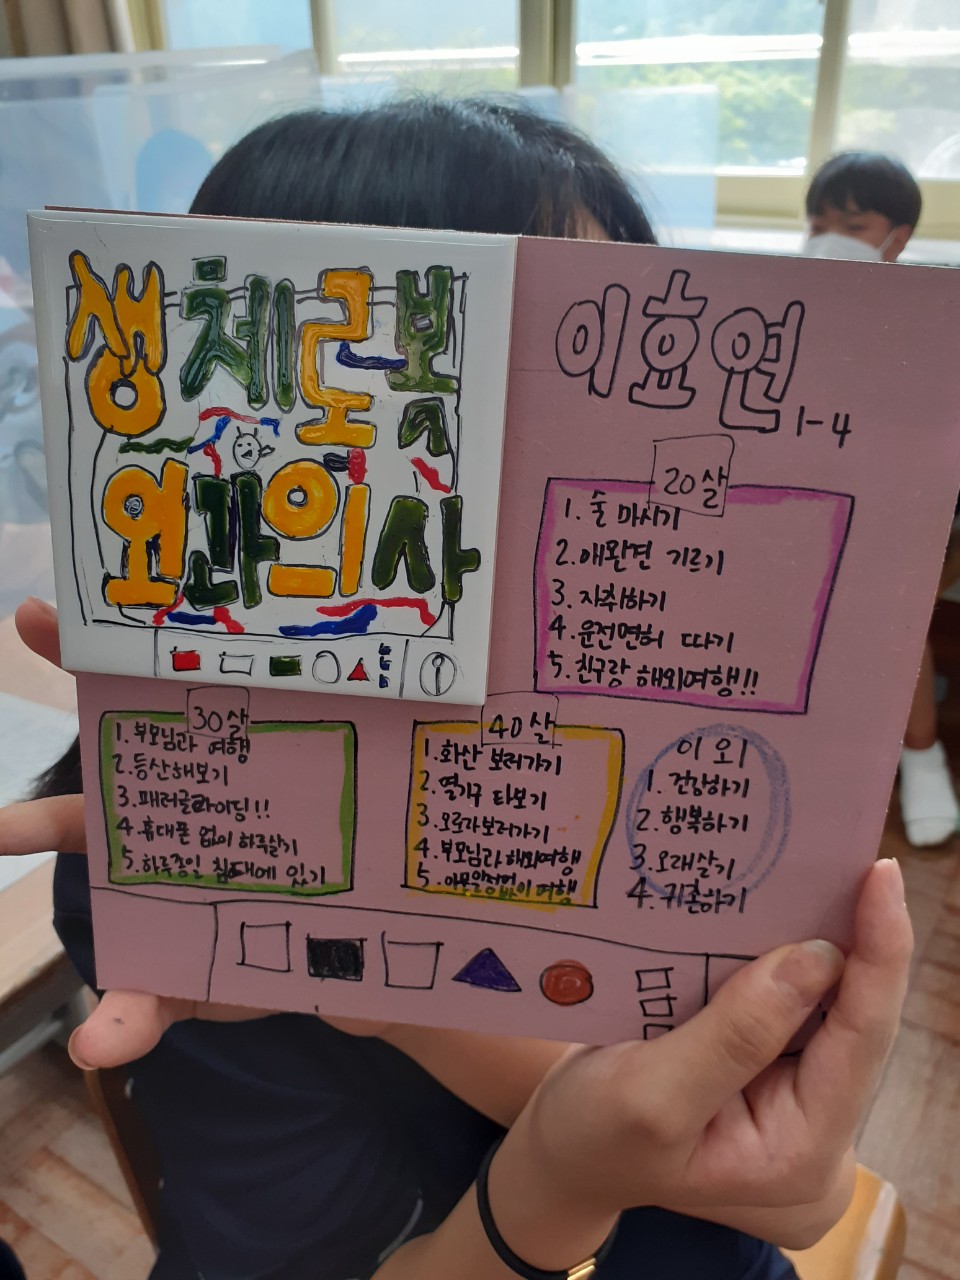 생체로봇
외과의사
이효연
1-4
20살
1. 술 마시기
2. 애완견 기르기
3. 자취하기
4. 운전면허 따기
5. 친구랑 해외여행!!
30살
1. 부모님과 여행
2. 등산해보기
3. 패러글라이딩!!
4. 휴대폰 없이 하루살기
5. 하루종일 침대에 있기
40살
1. 화산 보러가기
2. 열기구 타보기
3. 오로라보러가기
4. 부모님과 해외여행
5. 아무일정없이 여행
이외
1. 건강하기
2. 행복하기
3. 오래살기
4. 귀촌하기